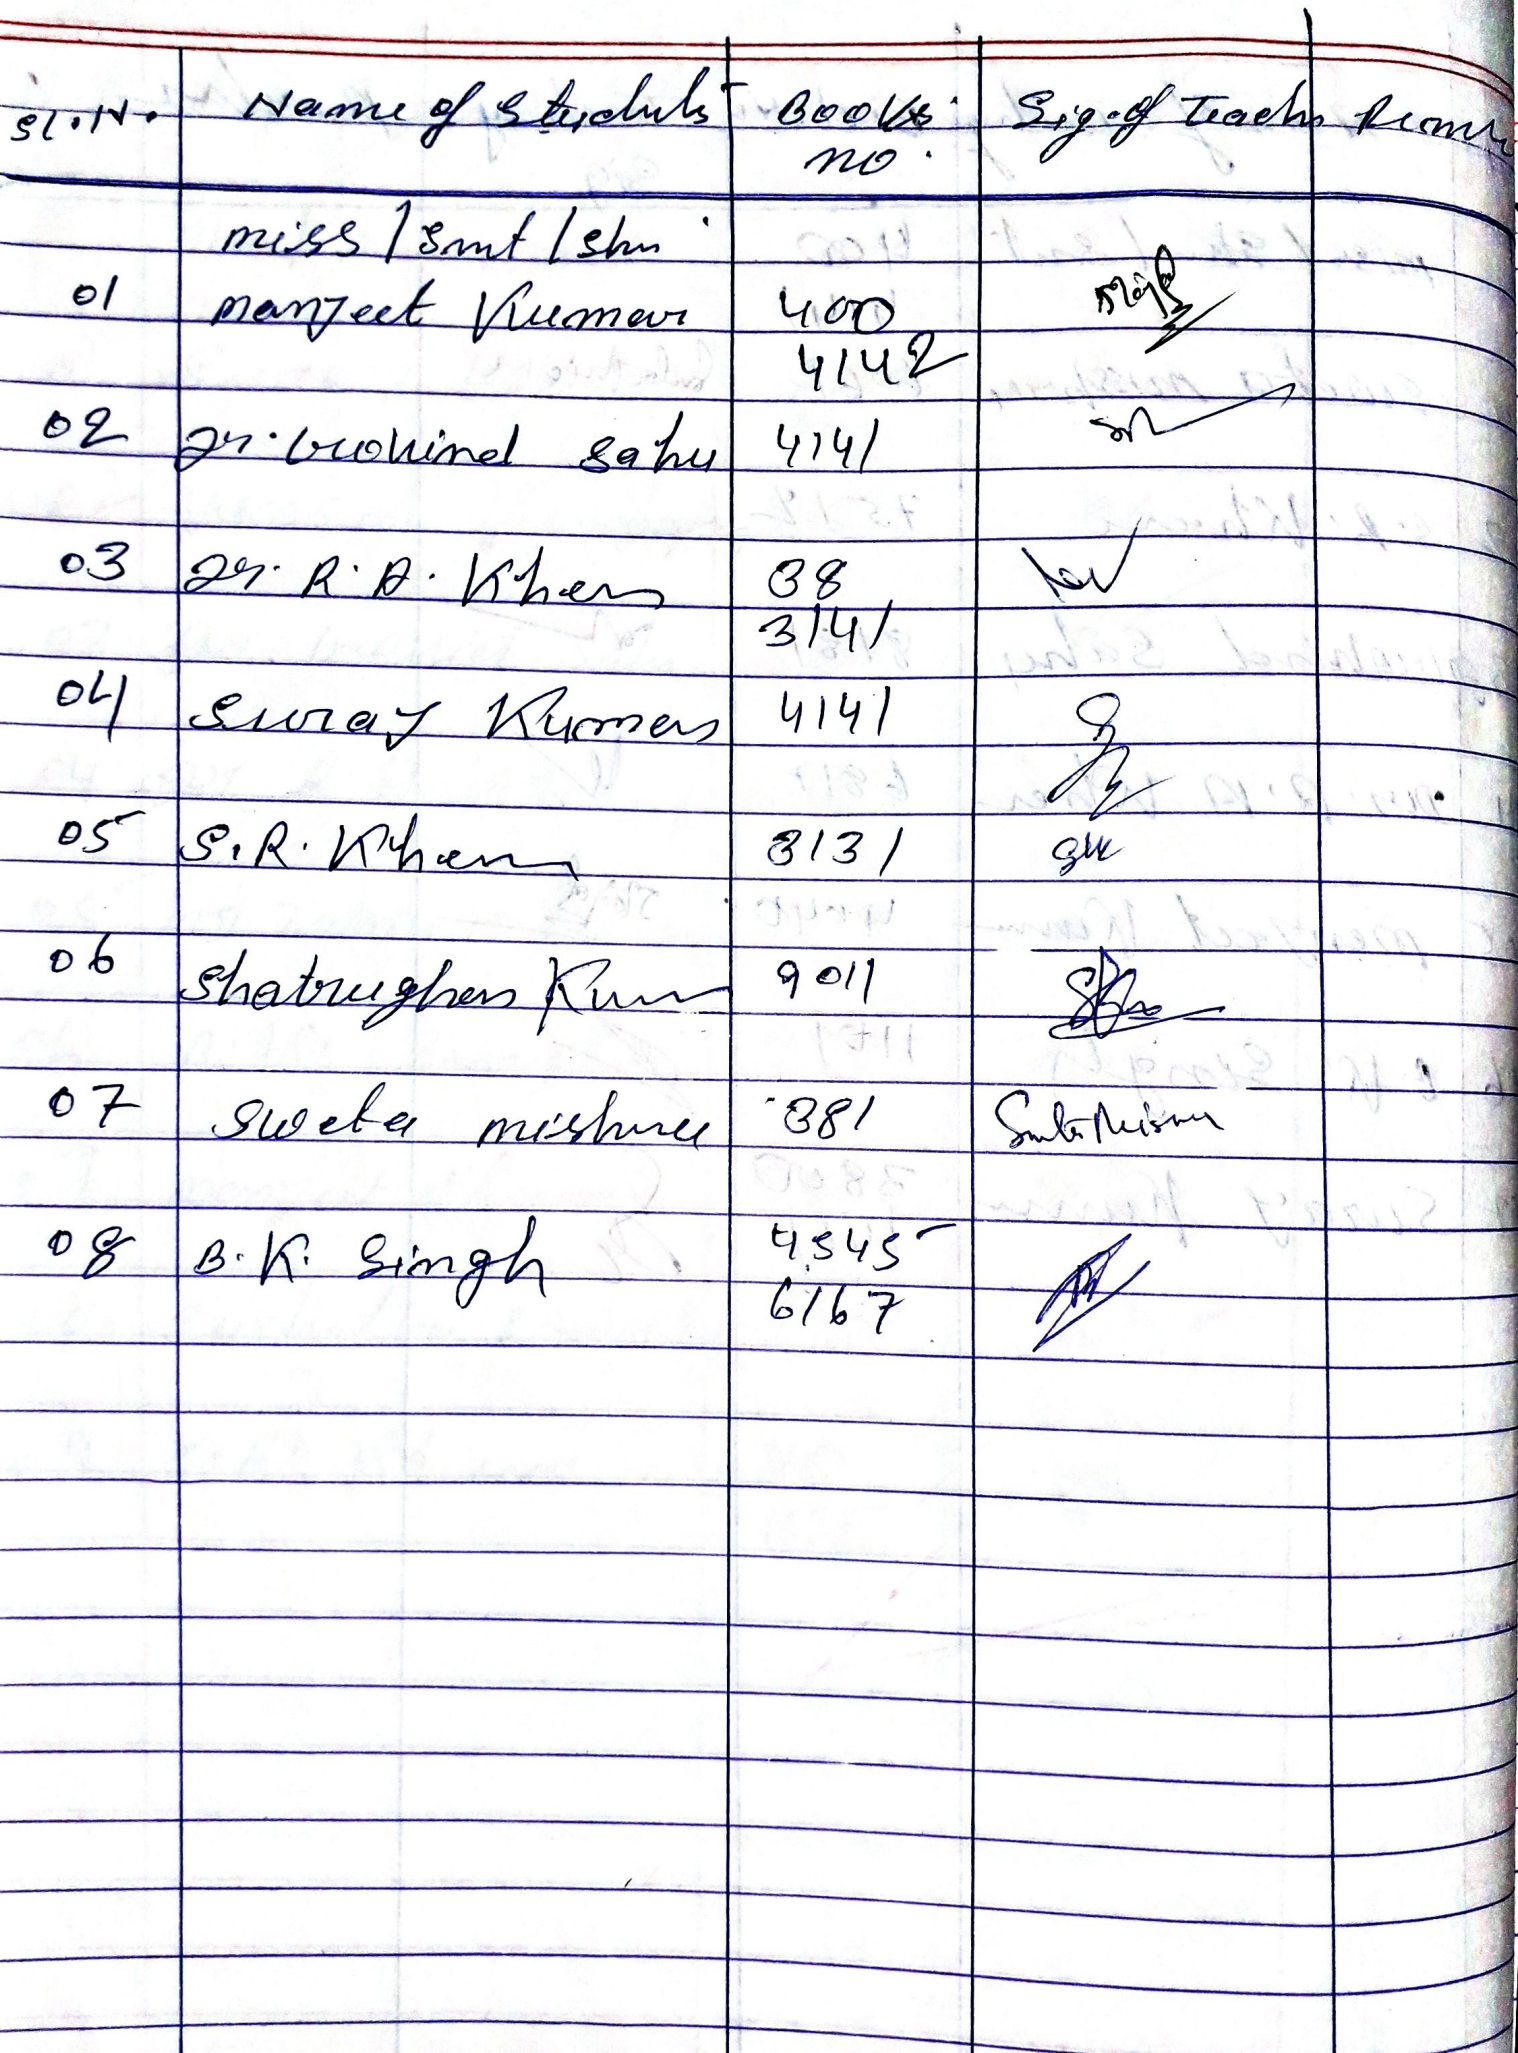 Sl.N. Name of Students Books no. Sig. of Teachr Remar
miss / Smt / Shri
01 manjeet Kumar 400
4142
02 Govind Sahu 4141
03 R. A. Khan 38
3141
04 Suraj Kumar 4141
05 S.R. Khan 3131
06 Shatrughan Kum 9011
07 Sweta mishra 381 Sweta Mishra
08 B.K. Singh 4545
6167